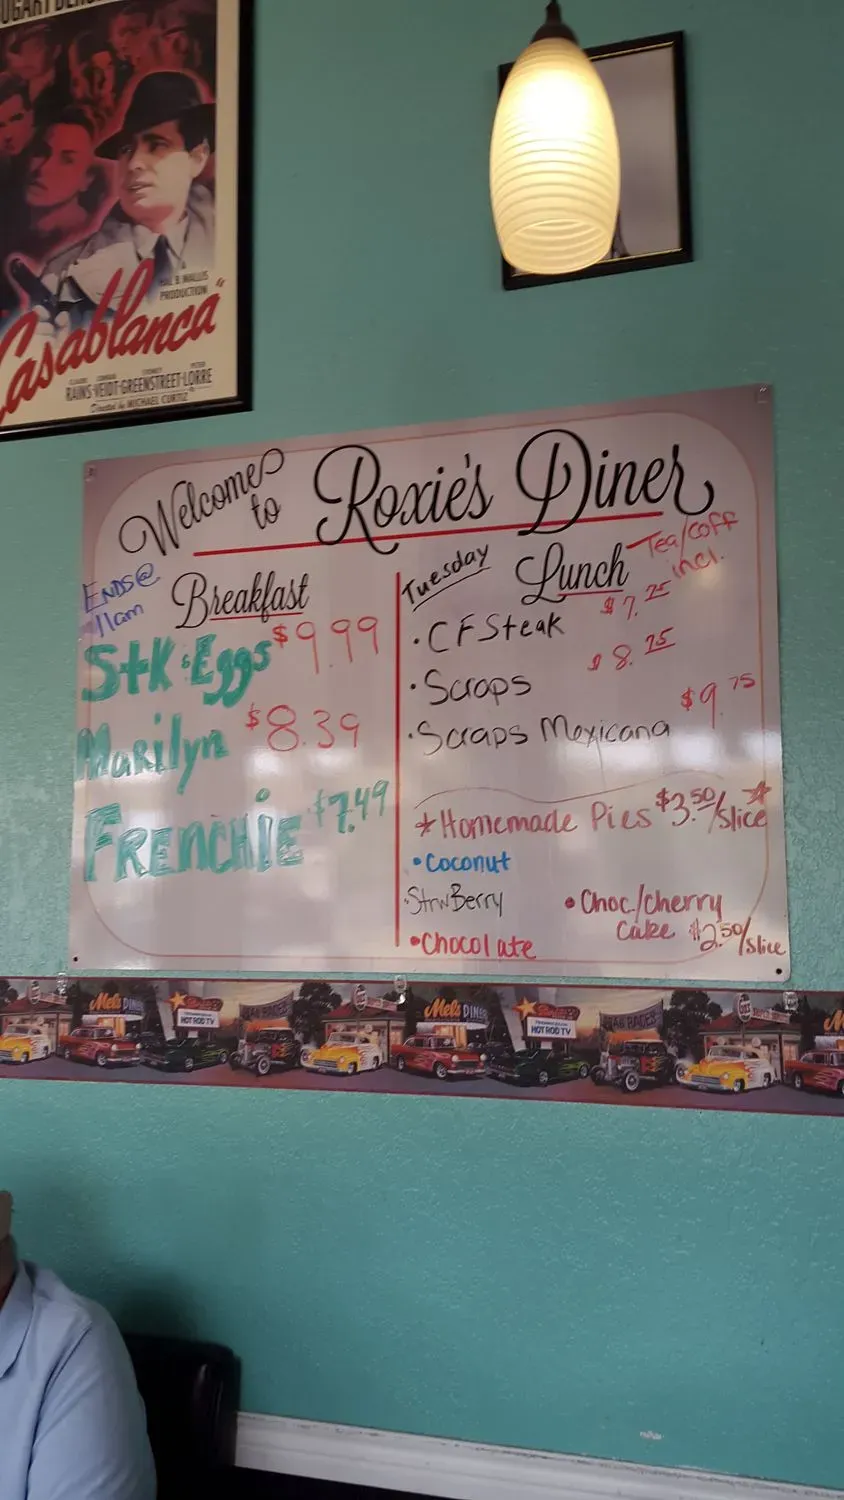 Casablanca
HAL B. WALLIS
PRODUCTION
RAINS·VEIDT·GREENSTREET·LORRE
Directed by MICHAEL CURTIZ
Welcome to Roxie's Diner
ENDS@
11am
Breakfast
Stk & Eggs $9.99
Marilyn $8.39
FRENCHIE $7.49
Tuesday
Lunch
Tea/coff
incl.
• CF Steak $7.25
• Scraps $8.25
• Scraps Mexicana $9.75
* Homemade Pies $3.50/Slice *
• Coconut
• StrwBerry
• Chocolate
• Choc/cherry
Cake $2.50/slice
Mel's DINER
HOT ROD TV
DRAG RACES
Mel's DINER
HOT ROD TV
DRAG RACES